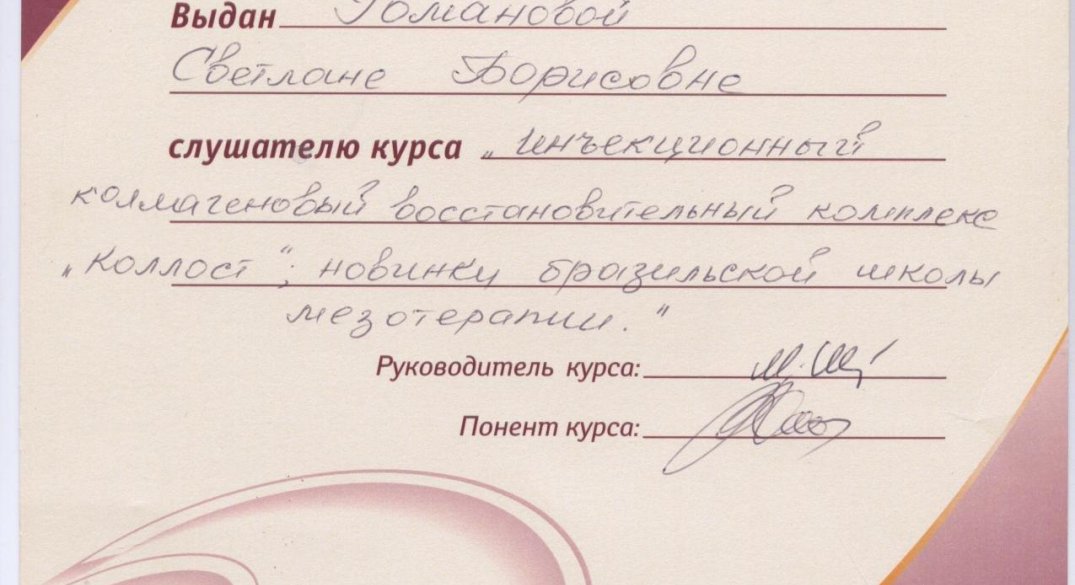 Выдан Романовой
Светлане Борисовне
слушателю курса „Инъекционный
коллагеновый восстановительный комплекс
„Коллост“; новинки бразильской школы
мезотерапии.“
Руководитель курса:
Понент курса: